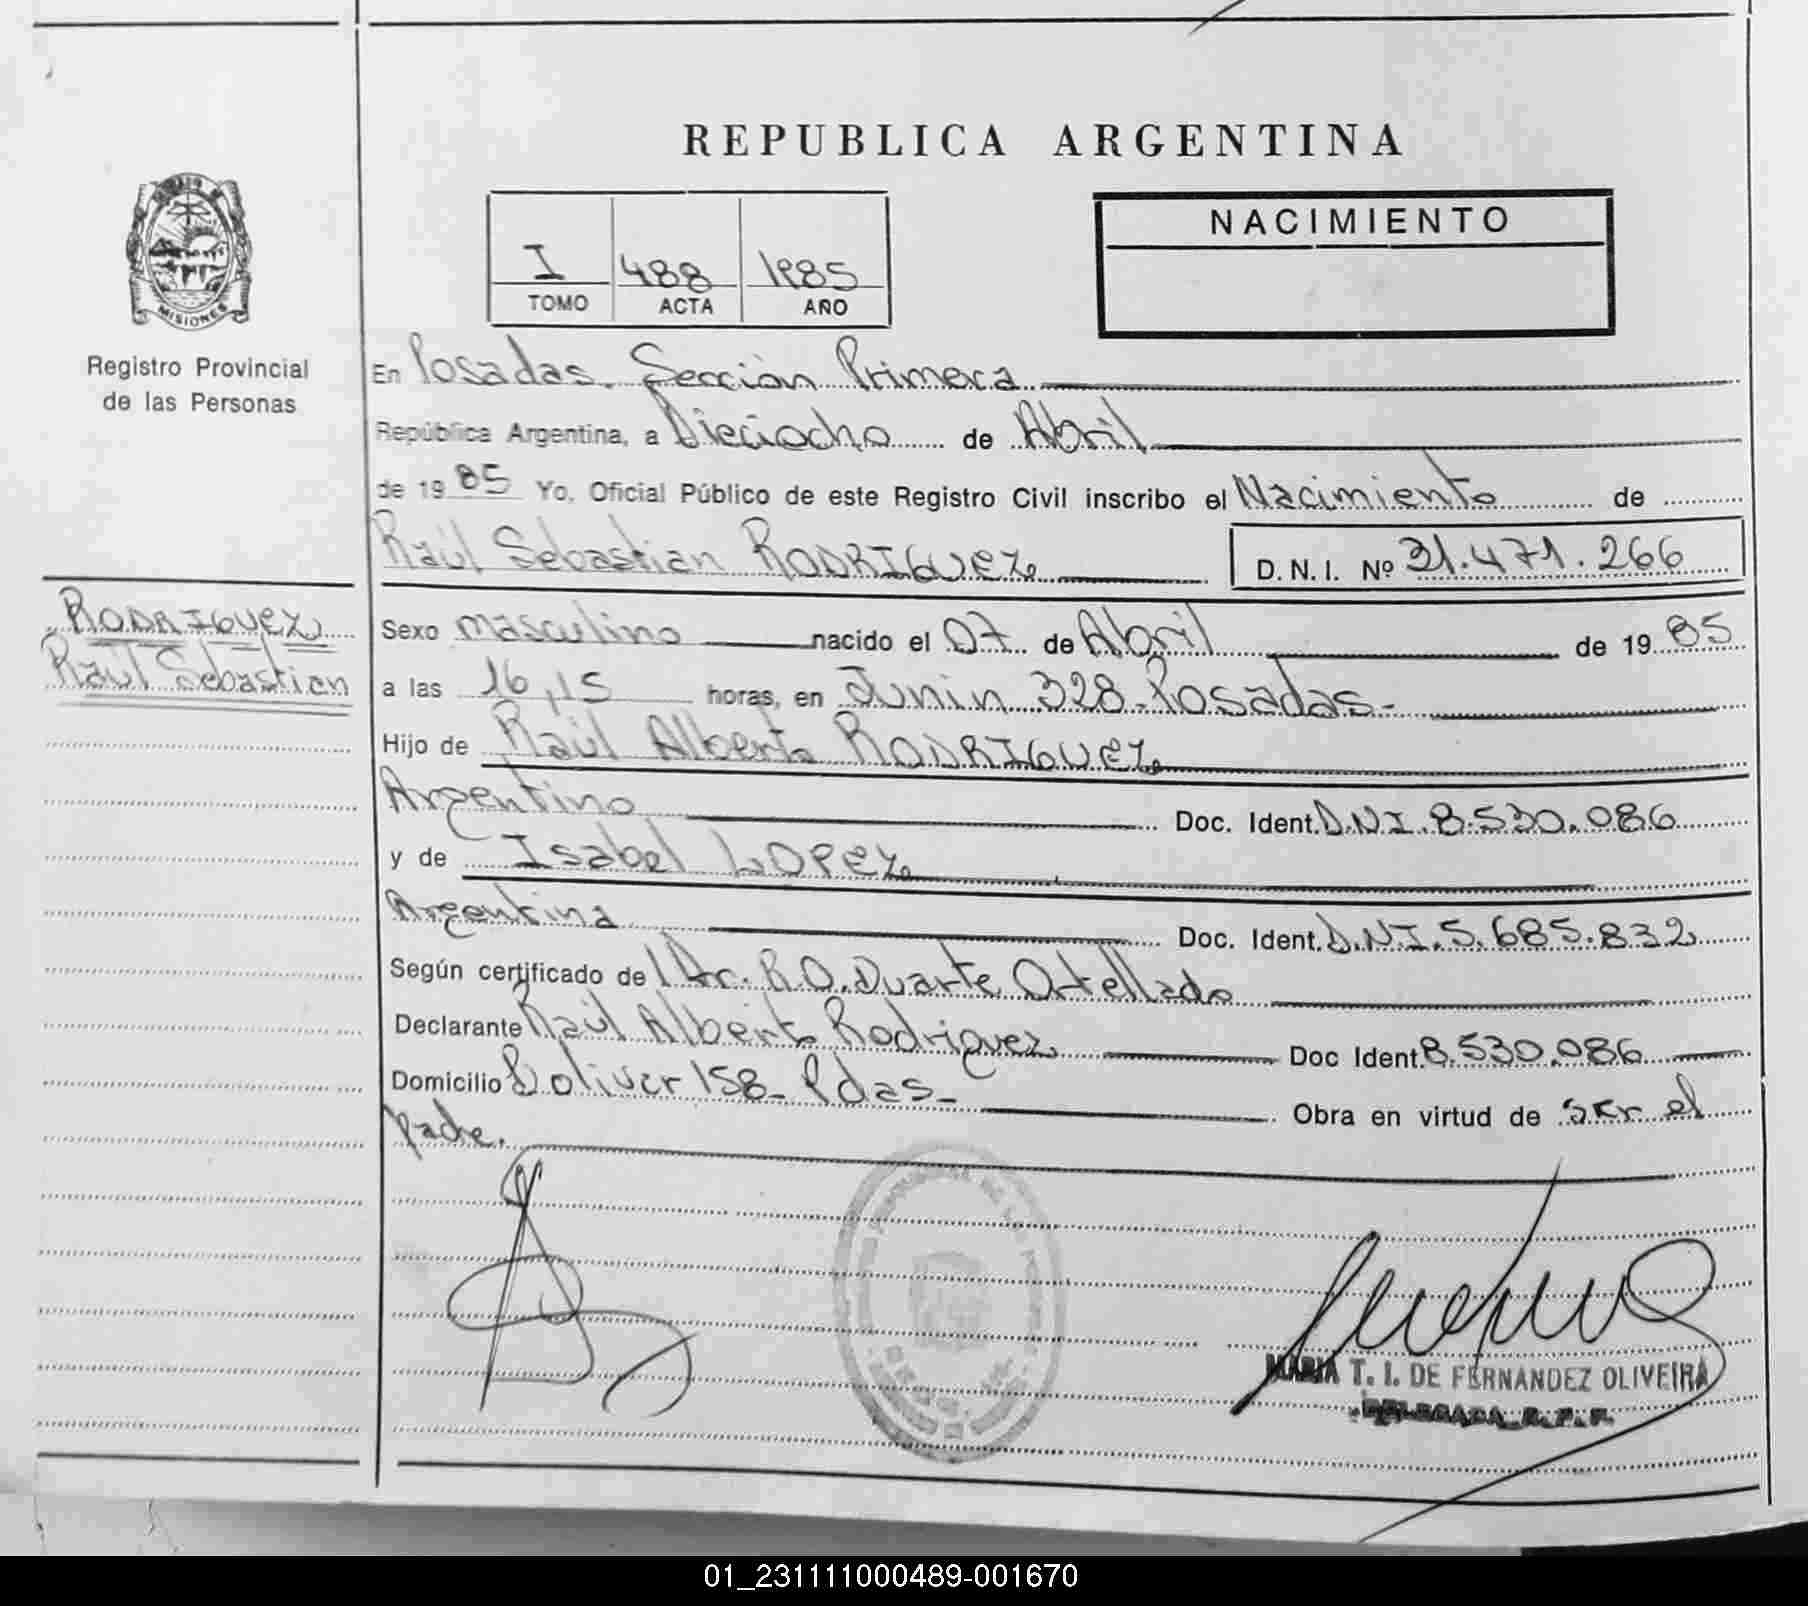 REPUBLICA ARGENTINA
MISIONES
Registro Provincial
de las Personas
I 488 1985
TOMO ACTA AÑO
NACIMIENTO
En Posadas. Sección Primera
República Argentina, a Dieciocho de Abril
de 1985 Yo, Oficial Público de este Registro Civil inscribo el Nacimiento de
Raúl Sebastian RODRIGUEZ D.N.I. Nº 31.471.266
RODRIGUEZ
Raúl Sebastian
Sexo masculino nacido el 07 de Abril de 1985
a las 16,15 horas, en Junin 328-Posadas-
Hijo de Raúl Alberto RODRIGUEZ
Argentino Doc. Ident. D.N.I. 8.530.086
y de Isabel LOPEZ
Argentina Doc. Ident. D.N.I. 5.685.832
Según certificado de Dr. R.O. Duarte Ortellado
Declarante Raúl Alberto Rodriguez Doc Ident. 8.530.086
Domicilio Bolivar 158- Pdas- Obra en virtud de ser el
padre.
MARIA T. I. DE FERNANDEZ OLIVEIRA
DELEGADA R. P. P.
01_231111000489-001670